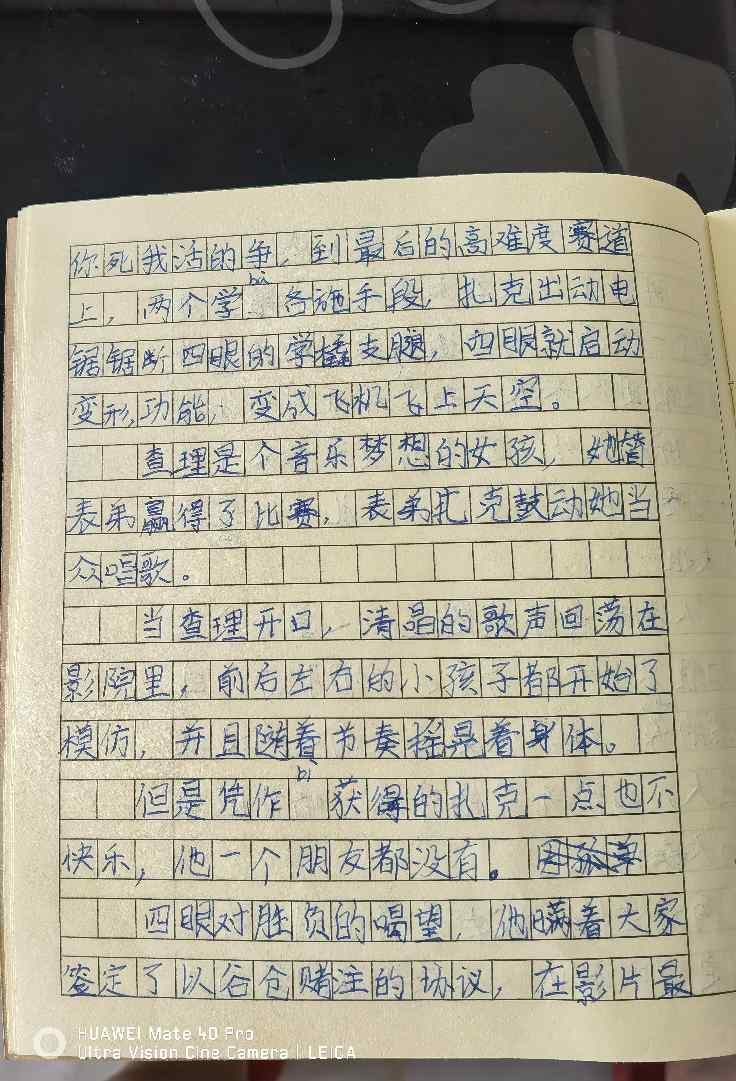 你死我活的争，到最后的高难度赛道
bà
上，两个学 各施手段，扎克出动电
锯锯断四眼的学橇支腿，四眼就启动
变形功能，变成飞机飞上天空。
查理是个音乐梦想的女孩，她替
表弟赢得了比赛，表弟扎克鼓动她当
众唱歌。
当查理开口，清晶的歌声回荡在
影院里，前后左右的小孩子都开始了
模仿，并且随着节奏摇晃着身体。
bì
但是凭作 获得的扎克一点也不
快乐，他一个朋友都没有。
四眼对胜负的喝望，他瞒着大家
签定了以谷仓赌注的协议，在影片最
HUAWEI Mate 40 Pro
Ultra Vision Cine Camera | LEICA